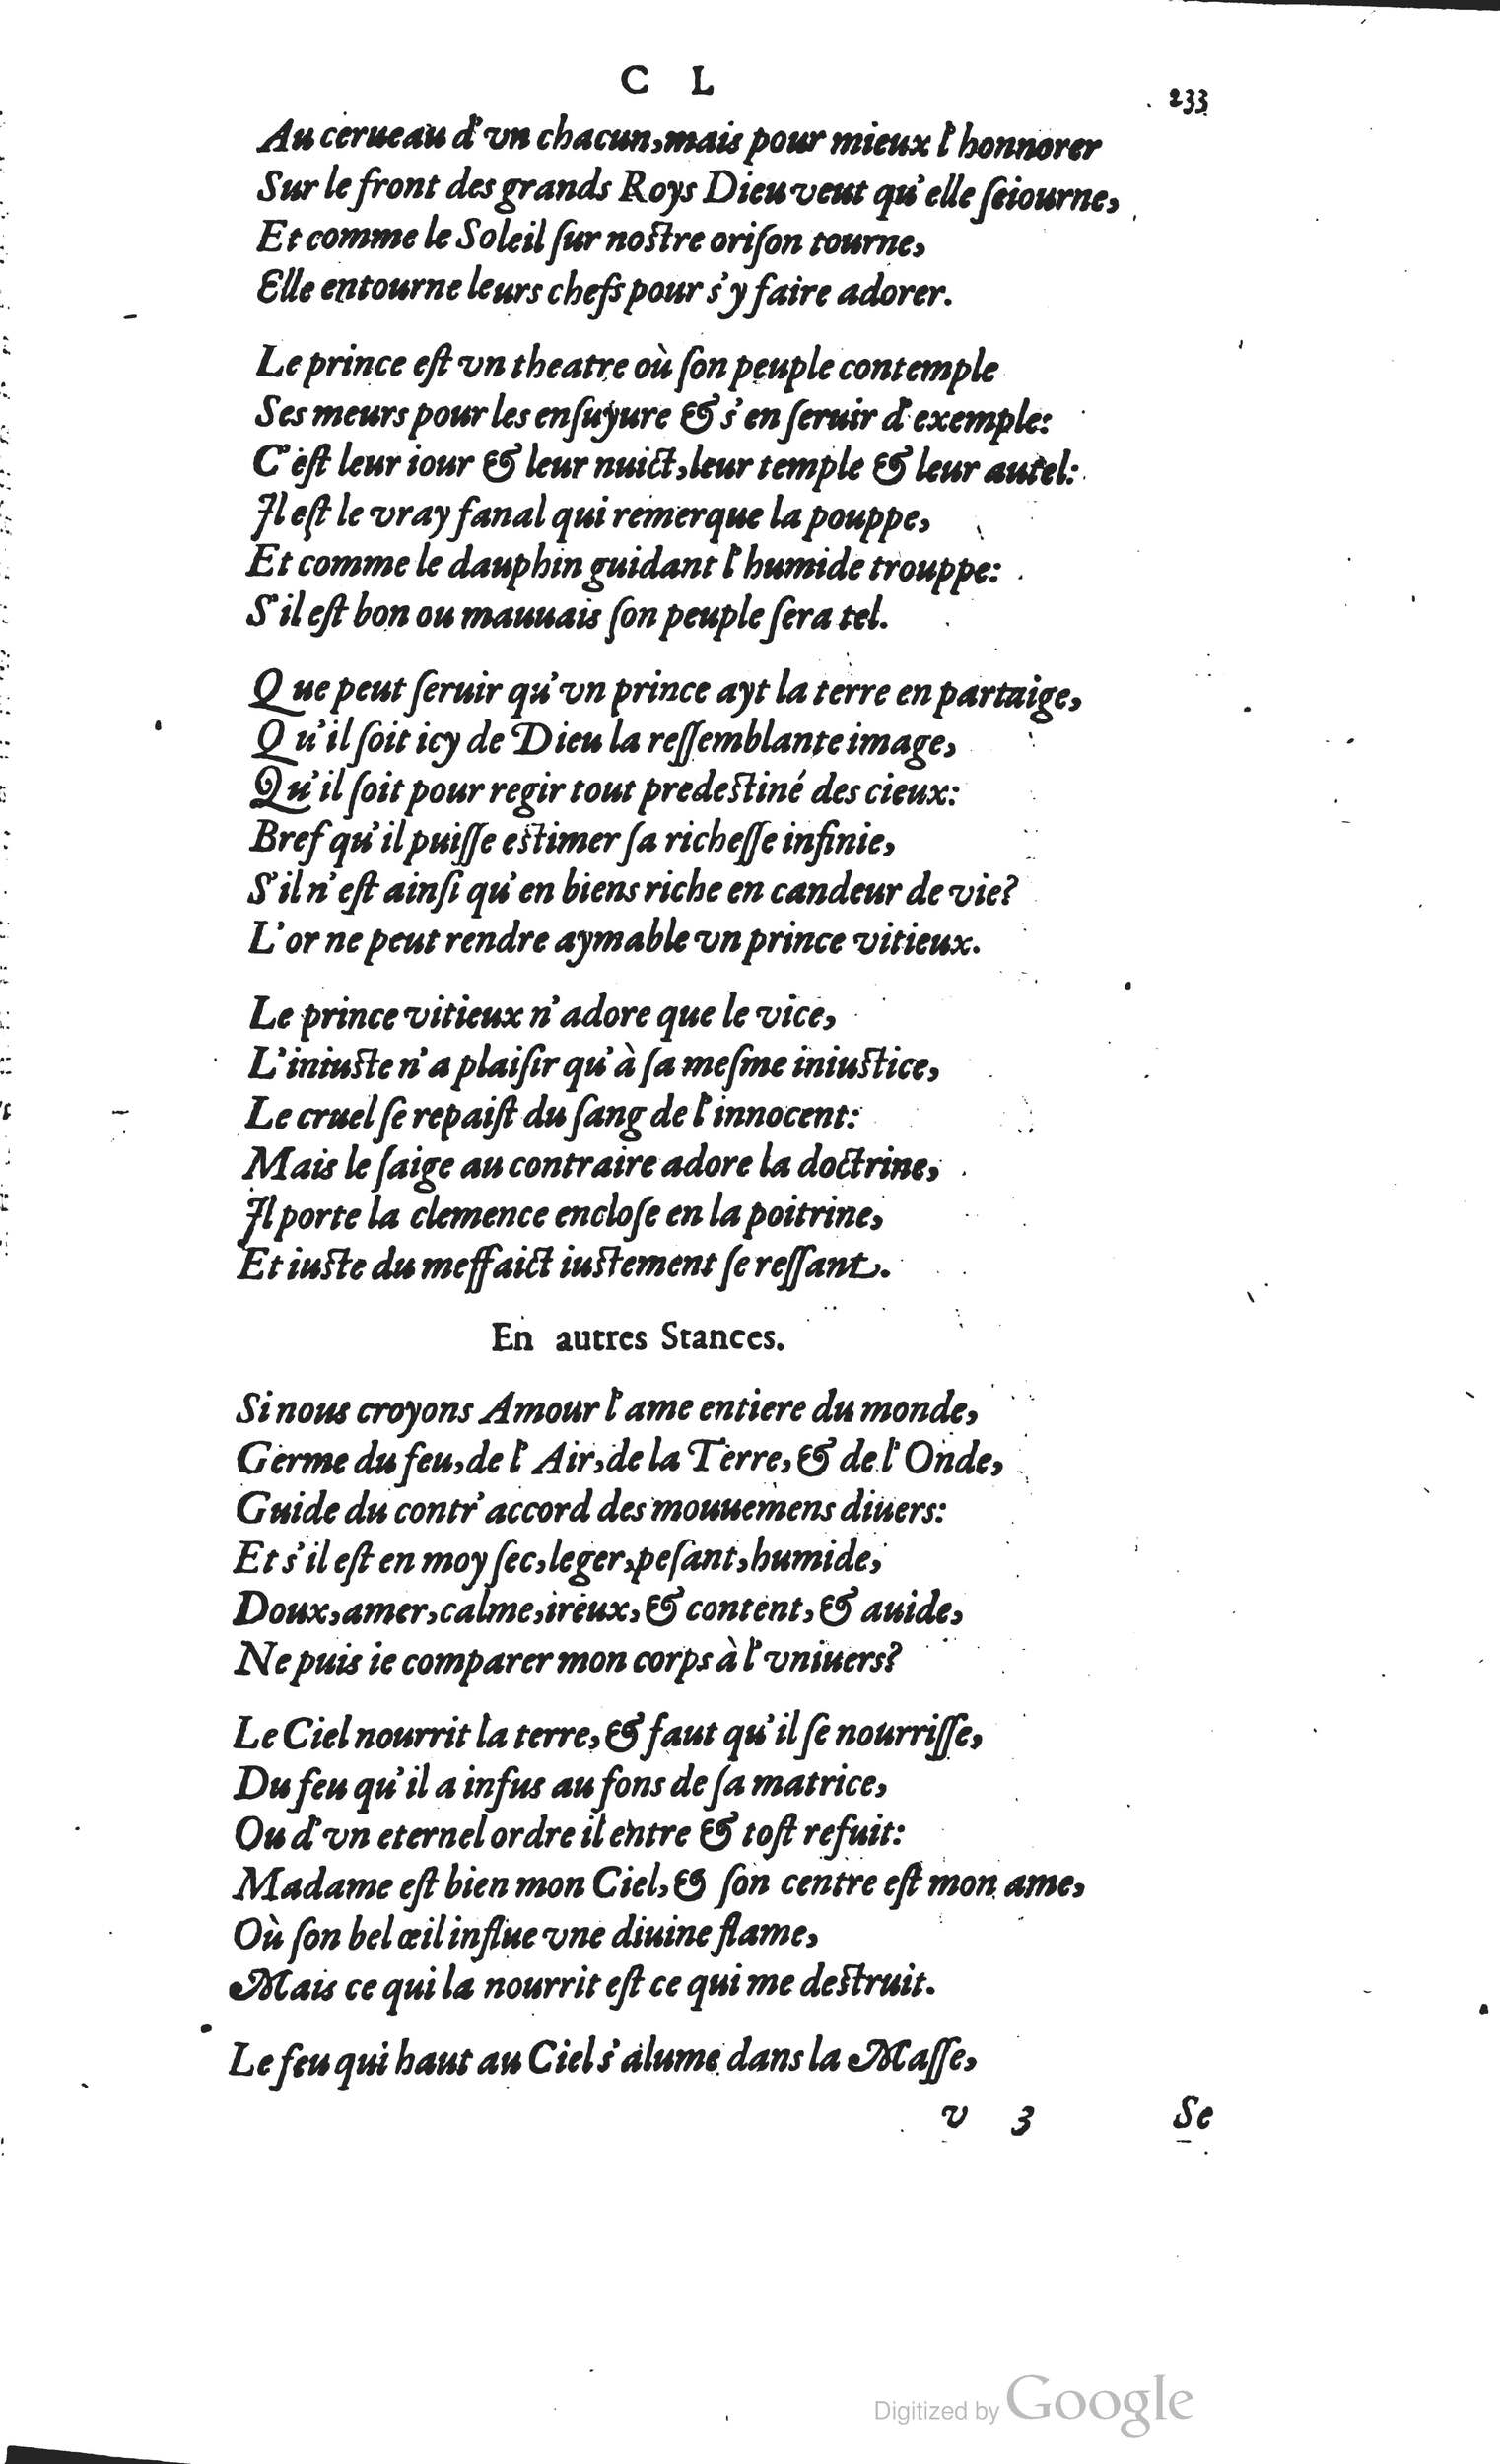 C L
233
Au cerueau d'vn chacun, mais pour mieux l'honnorer
Sur le front des grands Roys Dieu veut qu'elle ſeiourne,
Et comme le Soleil ſur noſtre oriſon tourne,
Elle entourne leurs chefs pour s'y faire adorer.
Le prince eſt vn theatre où ſon peuple contemple
Ses meurs pour les enſuyure & s'en ſeruir d'exemple:
C'eſt leur iour & leur nuict, leur temple & leur autel:
Il eſt le vray fanal qui remerque la pouppe,
Et comme le dauphin guidant l'humide trouppe:
S'il eſt bon ou mauuais ſon peuple ſera tel.
Que peut ſeruir qu'vn prince ayt la terre en partaige,
Qu'il ſoit icy de Dieu la reſſemblante image,
Qu'il ſoit pour regir tout predeſtiné des cieux:
Bref qu'il puiſſe eſtimer ſa richeſſe infinie,
S'il n'eſt ainſi qu'en biens riche en candeur de vie?
L'or ne peut rendre aymable vn prince vitieux.
Le prince vitieux n'adore que le vice,
L'iniuſte n'a plaiſir qu'à ſa meſme iniuſtice,
Le cruel ſe repaiſt du ſang de l'innocent:
Mais le ſaige au contraire adore la doctrine,
Il porte la clemence encloſe en la poitrine,
Et iuſte du meffaict iuſtement ſe reſſant.
En autres Stances.
Si nous croyons Amour l'ame entiere du monde,
Germe du feu, de l'Air, de la Terre, & de l'Onde,
Guide du contr'accord des mouuemens diuers:
Et s'il eſt en moy ſec, leger, peſant, humide,
Doux, amer, calme, ireux, & content, & auide,
Ne puis ie comparer mon corps à l'vniuers?
Le Ciel nourrit la terre, & faut qu'il ſe nourriſſe,
Du feu qu'il a infus au fons de ſa matrice,
Ou d'vn eternel ordre il entre & toſt refuit:
Madame eſt bien mon Ciel, & ſon centre eſt mon ame,
Où ſon bel œil influe vne diuine flame,
Mais ce qui la nourrit eſt ce qui me deſtruit.
Le feu qui haut au Ciel s'alume dans la Maſſe,
v 3 Se
Digitized by Google